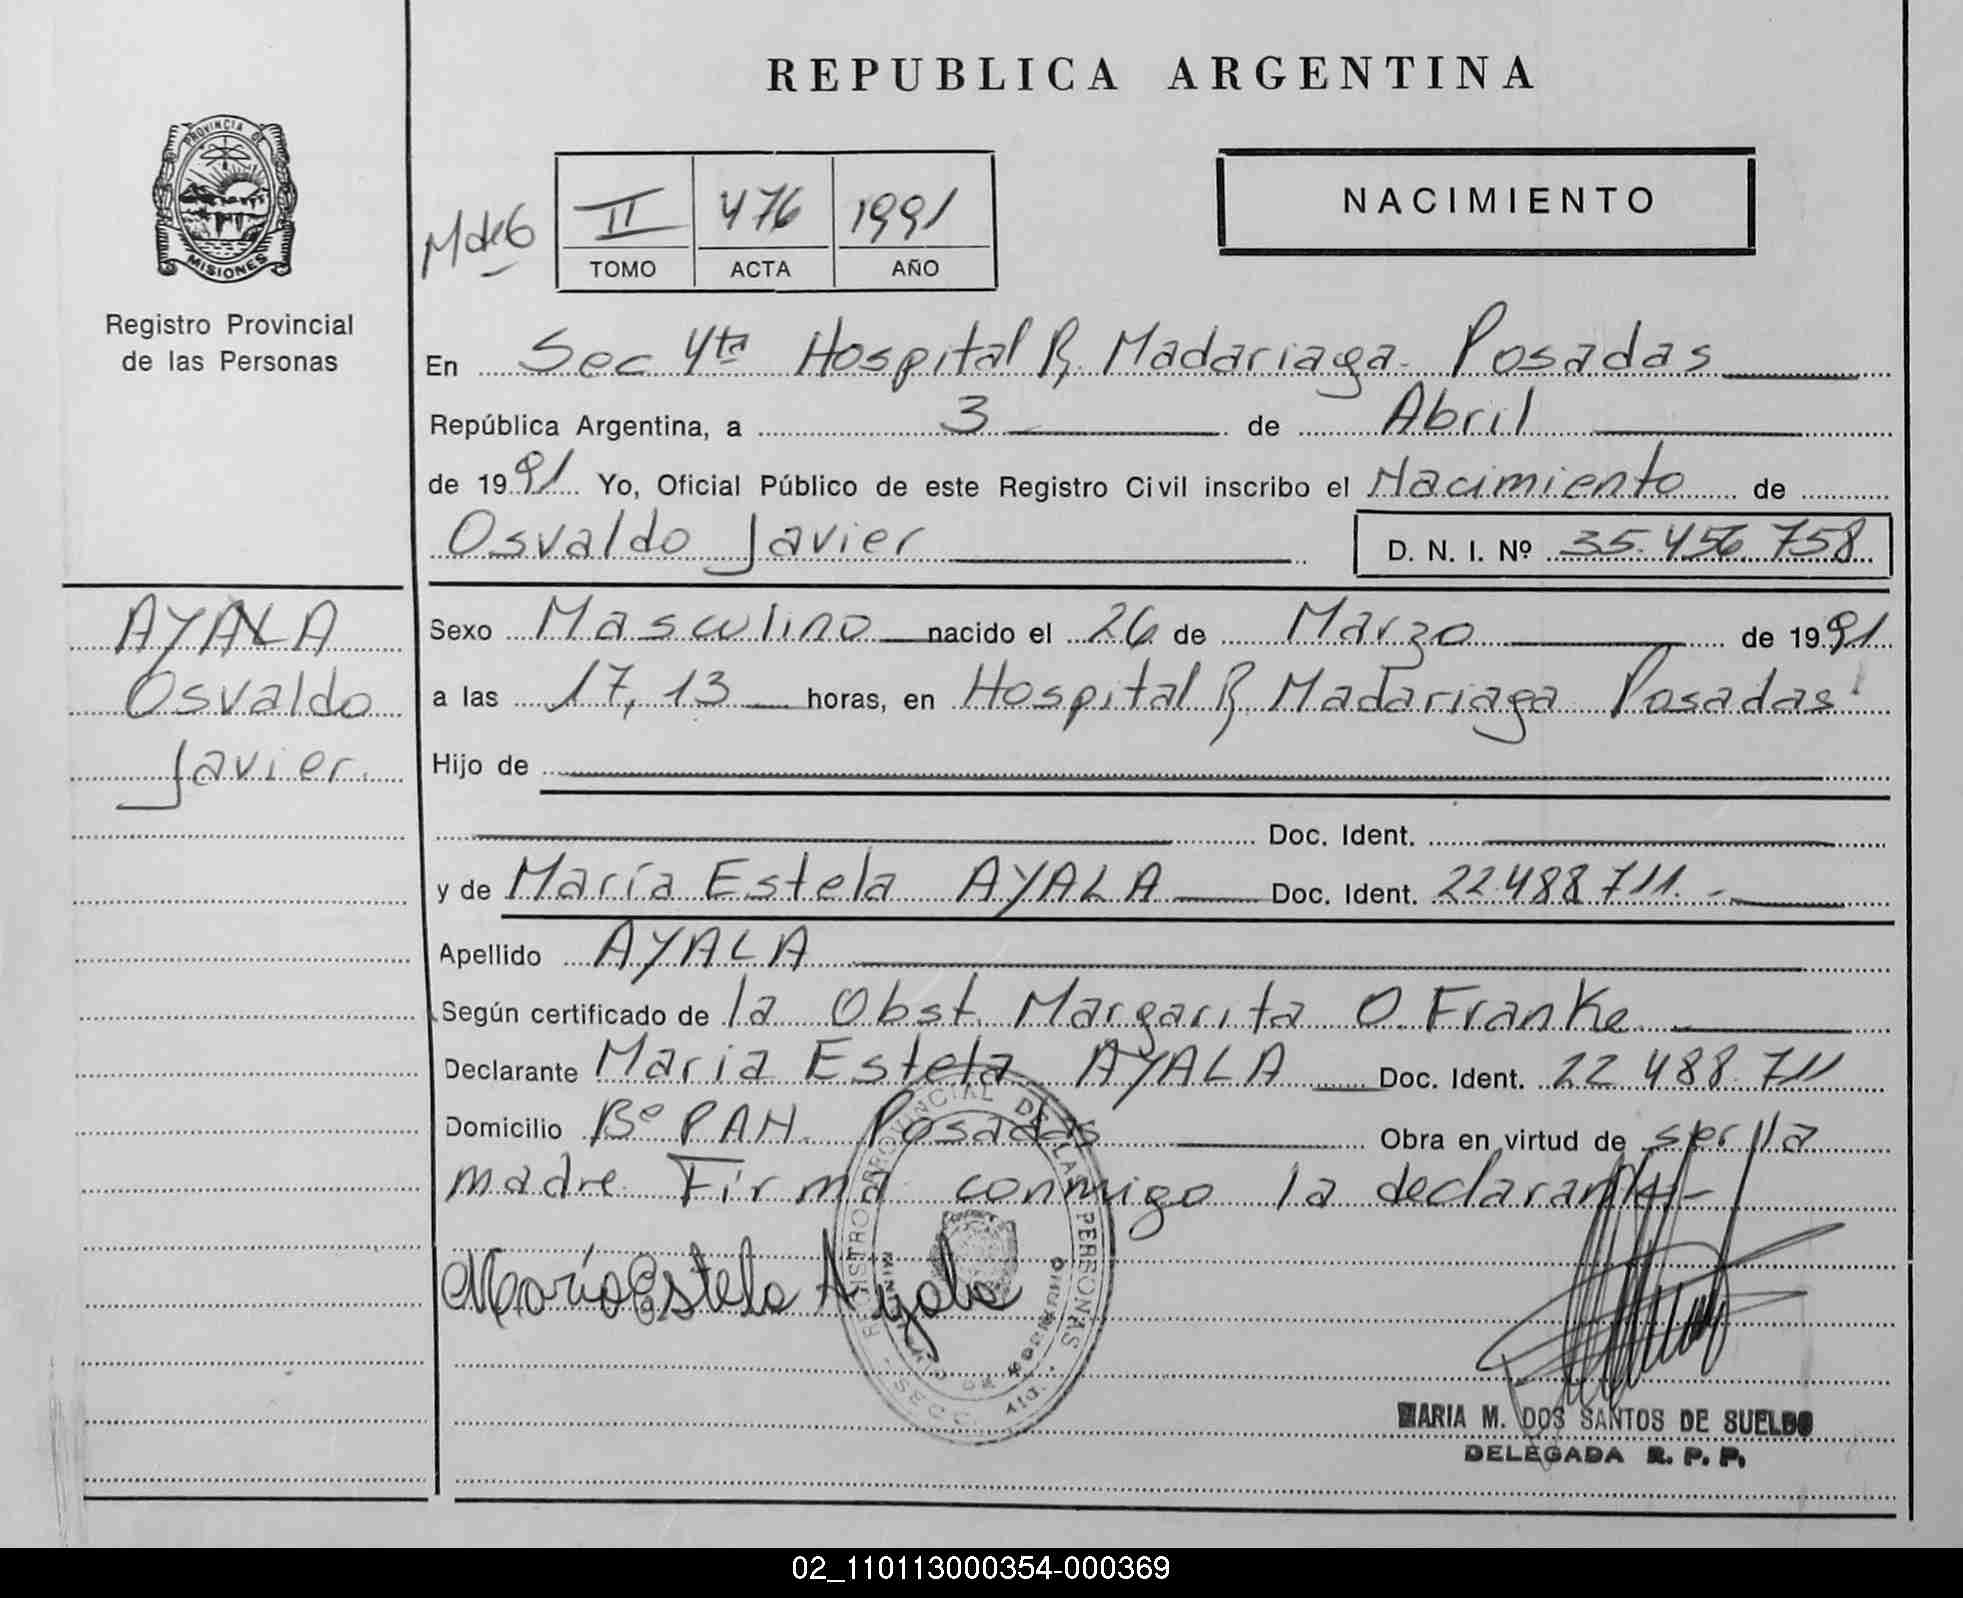 REPUBLICA ARGENTINA
PROVINCIA DE
MISIONES
Registro Provincial
de las Personas
II 476 1991
TOMO ACTA AÑO
NACIMIENTO
En Sec 4ta Hospital R. Madariaga. Posadas
República Argentina, a 3 de Abril
de 1991 Yo, Oficial Público de este Registro Civil inscribo el Nacimiento de
Osvaldo Javier D. N. I. Nº 35.456.758
AYALA
Osvaldo
Javier.
Sexo Masculino nacido el 26 de Marzo de 1991
a las 17,13 horas, en Hospital R. Madariaga Posadas
Hijo de
Doc. Ident.
y de María Estela AYALA Doc. Ident. 22.488.711.-
Apellido AYALA
Según certificado de la Obst. Margarita O. Franke
Declarante María Estela AYALA Doc. Ident. 22 488.711
Domicilio Bº PAN. Posadas Obra en virtud de ser la
madre. Firma conmigo la declarante.-
María Estela Ayala
REGISTRO PROVINCIAL DE LAS PERSONAS
MARIA M. DOS SANTOS DE SUELDO
DELEGADA R. P. P.
02_110113000354-000369